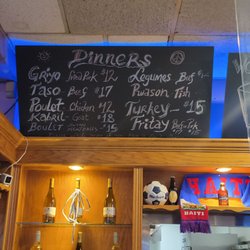 Dinners
Griyo Fried Pork $12
Taso Beef $17
Poulet Chicken $12
Kabrit Goat $18
Boulet $15
Legumes Beef
Pwason Fish
Turkey 15
Fritay
HAITI
HAITI